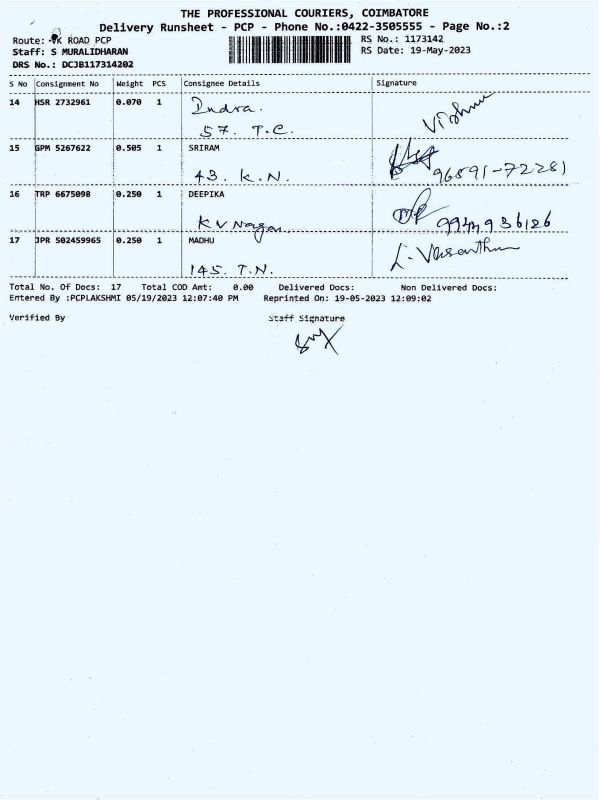 THE PROFESSIONAL COURIERS, COIMBATORE
Delivery Runsheet - PCP - Phone No.:0422-3505555 - Page No.:2
Route: K ROAD PCP
RS No.: 1173142
Staff: S MURALIDHARAN
RS Date: 19-May-2023
DRS No.: DCJB117314202
S No Consignment No Weight PCS Consignee Details Signature
14 HSR 2732961 0.070 1 Indra. Vishnu
57. T.C.
15 GPM 5267622 0.505 1 SRIRAM
43. K.N. 96591-72281
16 TRP 6675098 0.250 1 DEEPIKA
K V Nagar
17 JPR 502459965 0.250 1 MADHU L. Vasantha
145. T.N.
Total No. Of Docs: 17 Total COD Amt: 0.00 Delivered Docs: Non Delivered Docs:
Entered By :PCPLAKSHMI 05/19/2023 12:07:40 PM Reprinted On: 19-05-2023 12:09:02
Verified By Staff Signature